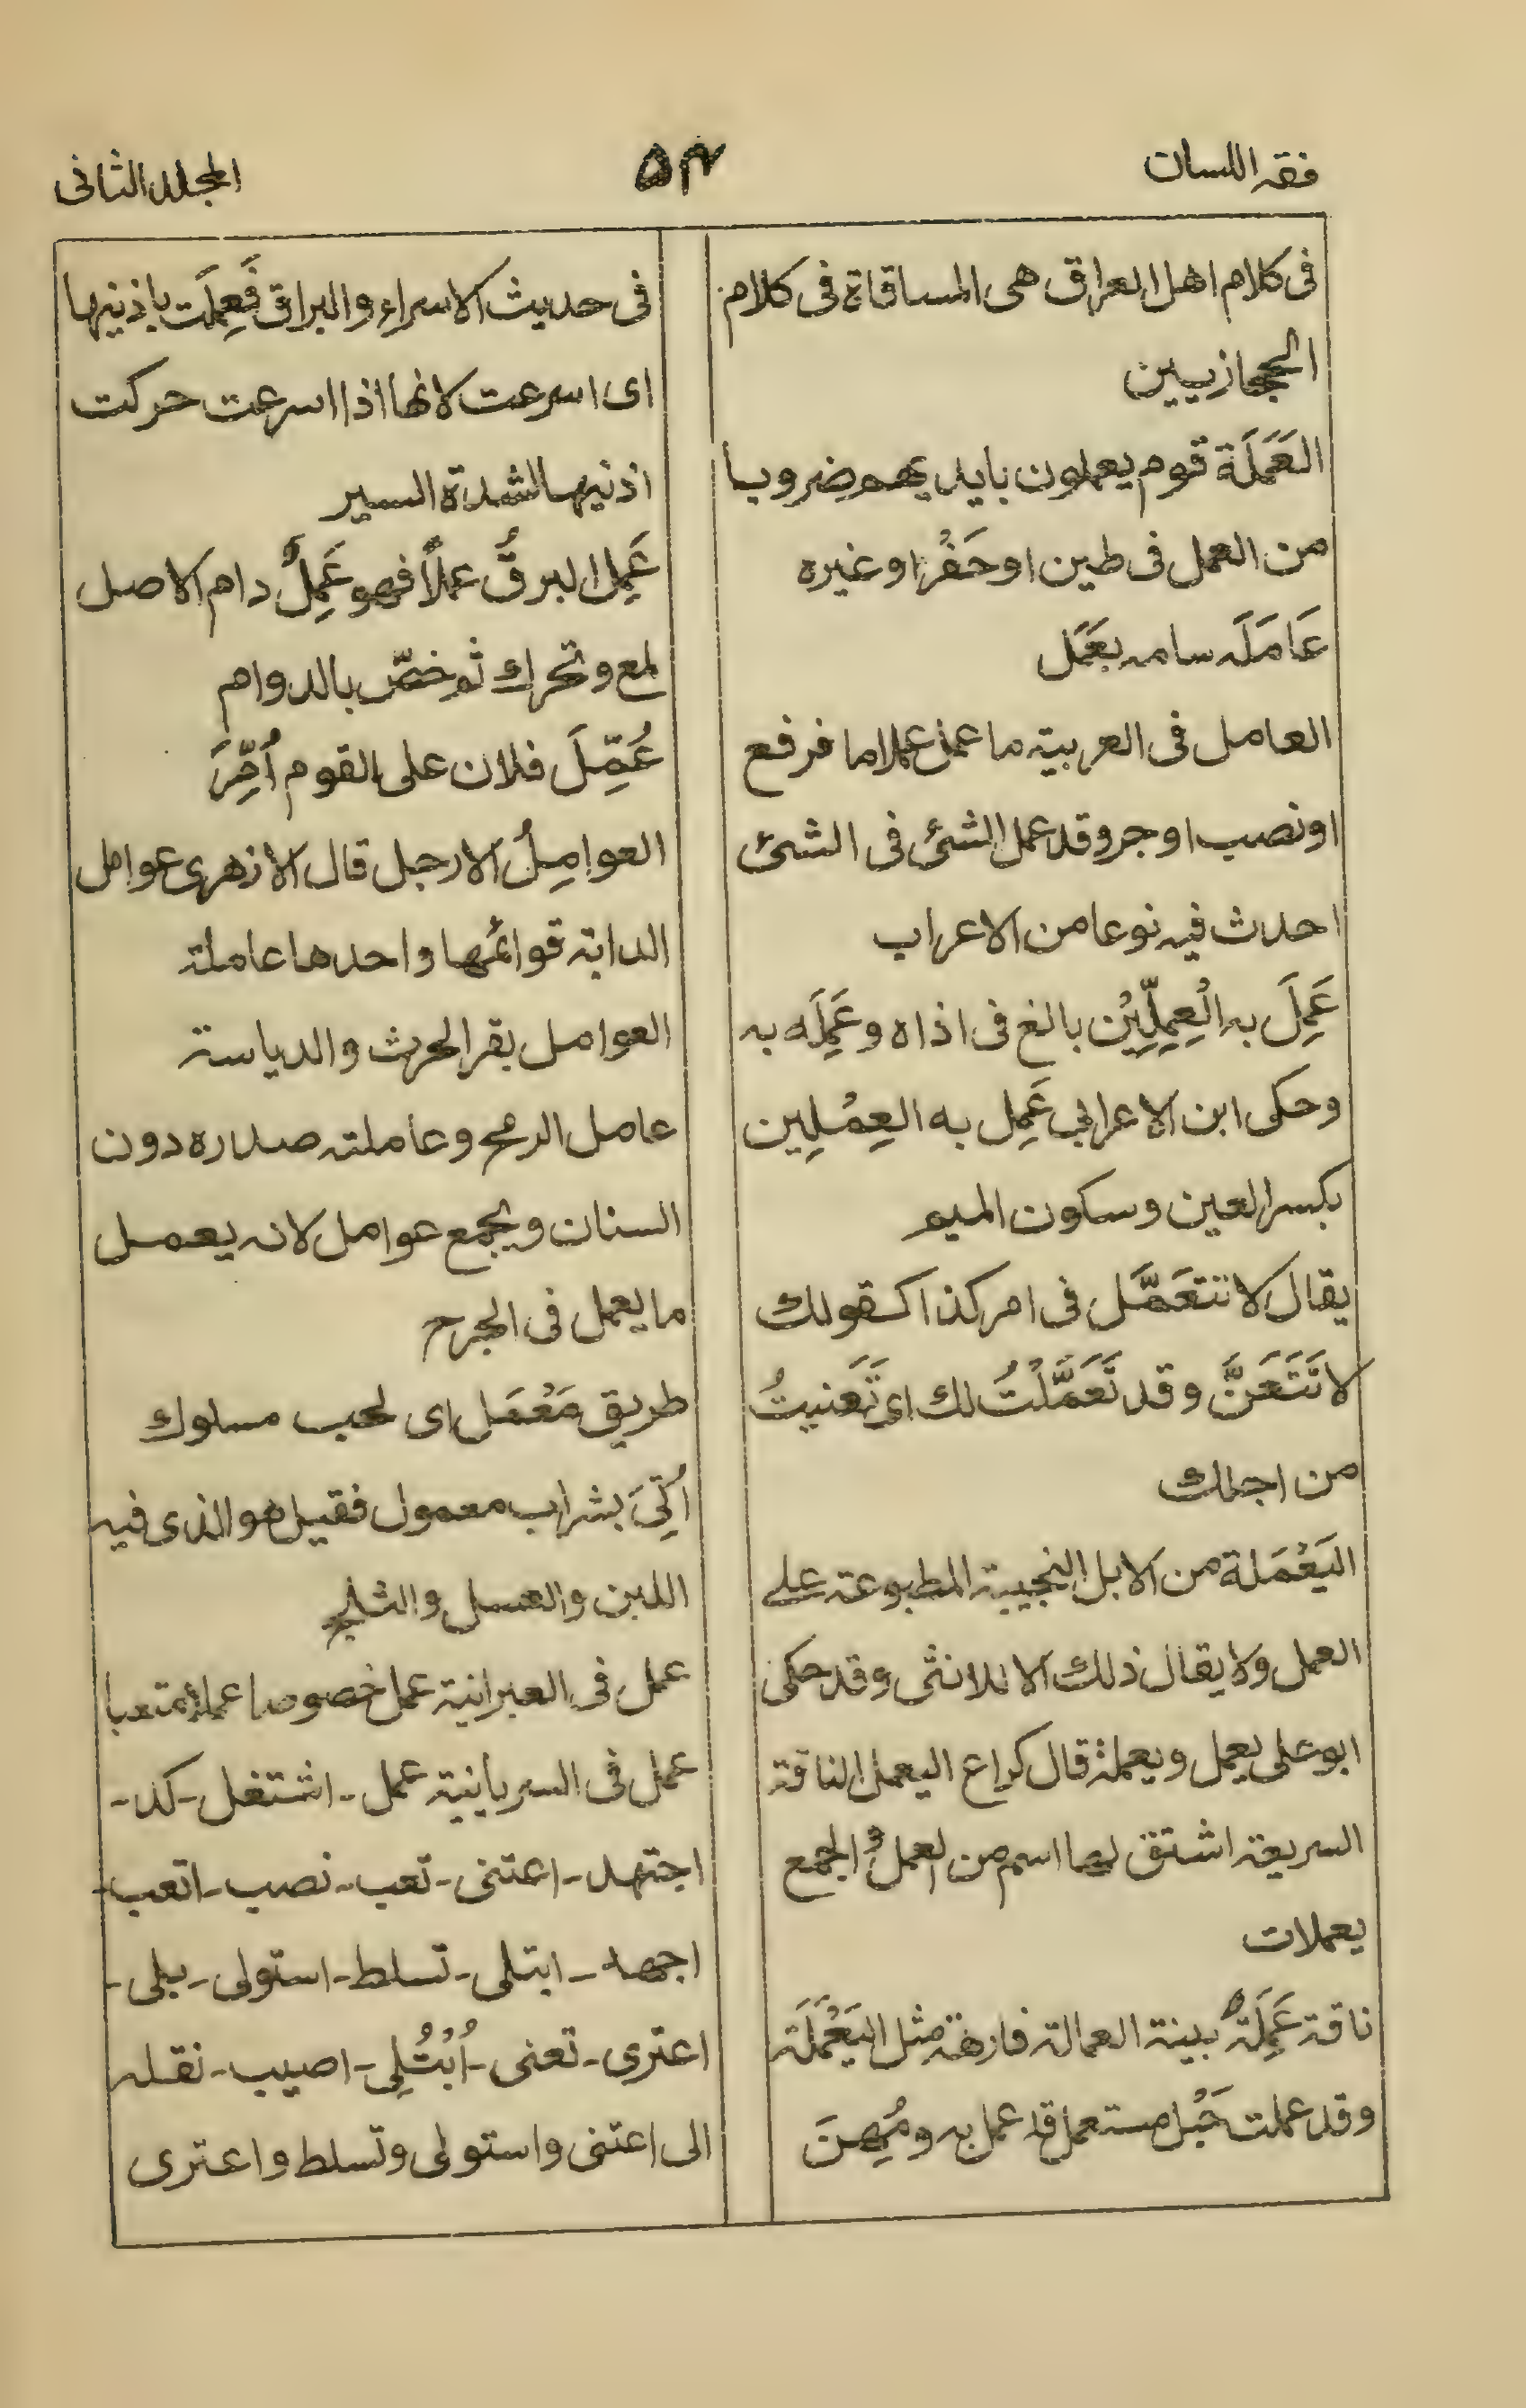 فقه اللسان
۵۴
المجلد الثانى
فى كلام اهل العراق هى المساقاة فى كلام
الحجازيين
العَمَلَة قوم يعملون بايديهم ضروبا
من العمل فى طين اوحَفْر اوغيره
عَامَلَه سامه بعَمَل
العامل فى العربية ما عمل عملا ما فرفع
اونصب اوجر وقد عمل الشئ فى الشئ
احدث فيه نوعا من الاعراب
عَمِلَ به الْعِمِلِّيْن بالغ فى اذاه وعَمِلَه به
وحكى ابن الاعرابى عَمِل به العِمْلِين
بكسر العين وسكون الميم
يقال لا تتعَمَّل فى امر كذا كقولك
لا تَتَعَنَّ وقد تَعَمَّلْتُ لك اى تَعَنيتُ
من اجلك
اليَعْمَلة من الابل النجيبة المطبوعة على
العمل ولا يقال ذلك الا للانثى وقد حكى
ابوعلى يعمل ويعملة قال كراع اليعمل الناقة
السريعة اشتق لها اسم من العمل والجمع
يعملات
ناقة عَمِلَةٌ بينة العمالة فارهة مثل اليَعْمَلَة
وقد عملت حَبْل مستعمل قد عمل به ومُهِنَ
فى حديث الاسراء والبراق فَعِمِلَت باذنيها
اى اسرعت لانها اذا اسرعت حركت
اذنيها لشدة السير
عَمِل البرقُ عملاً فهو عَمِلٌ دام الاصل
لمع وتحرك ثم خصّ بالدوام
عُمِّلَ فلان على القوم اُمِّرَ
العوامِلُ الارجل قال الازهرى عوامل
الدابة قوائمها واحدها عاملة
العوامل بقر الحرث والدياسة
عامل الرمح وعاملته صدره دون
السنان ويجمع عوامل لانه يعمل
ما يعمل فى الجرح
طريق مَعْمَل اى لحب مسلوك
اُتِىَ بشراب معمول فقيل هو الذى فيه
اللبن والعسل والثلج
عمل فى العبرانية عمل خصوصا عملا متعبا
عمل فى السريانية عمل - اشتغل - كد -
اجتهد - اعتنى - تعب - نصب - اتعب -
اجهد - ابتلى - تسلط - استولى - بلى -
اعترى - تعنى - اُبْتُلِى - اصيب - نقله
الى اعتنى واستولى وتسلط واعترى